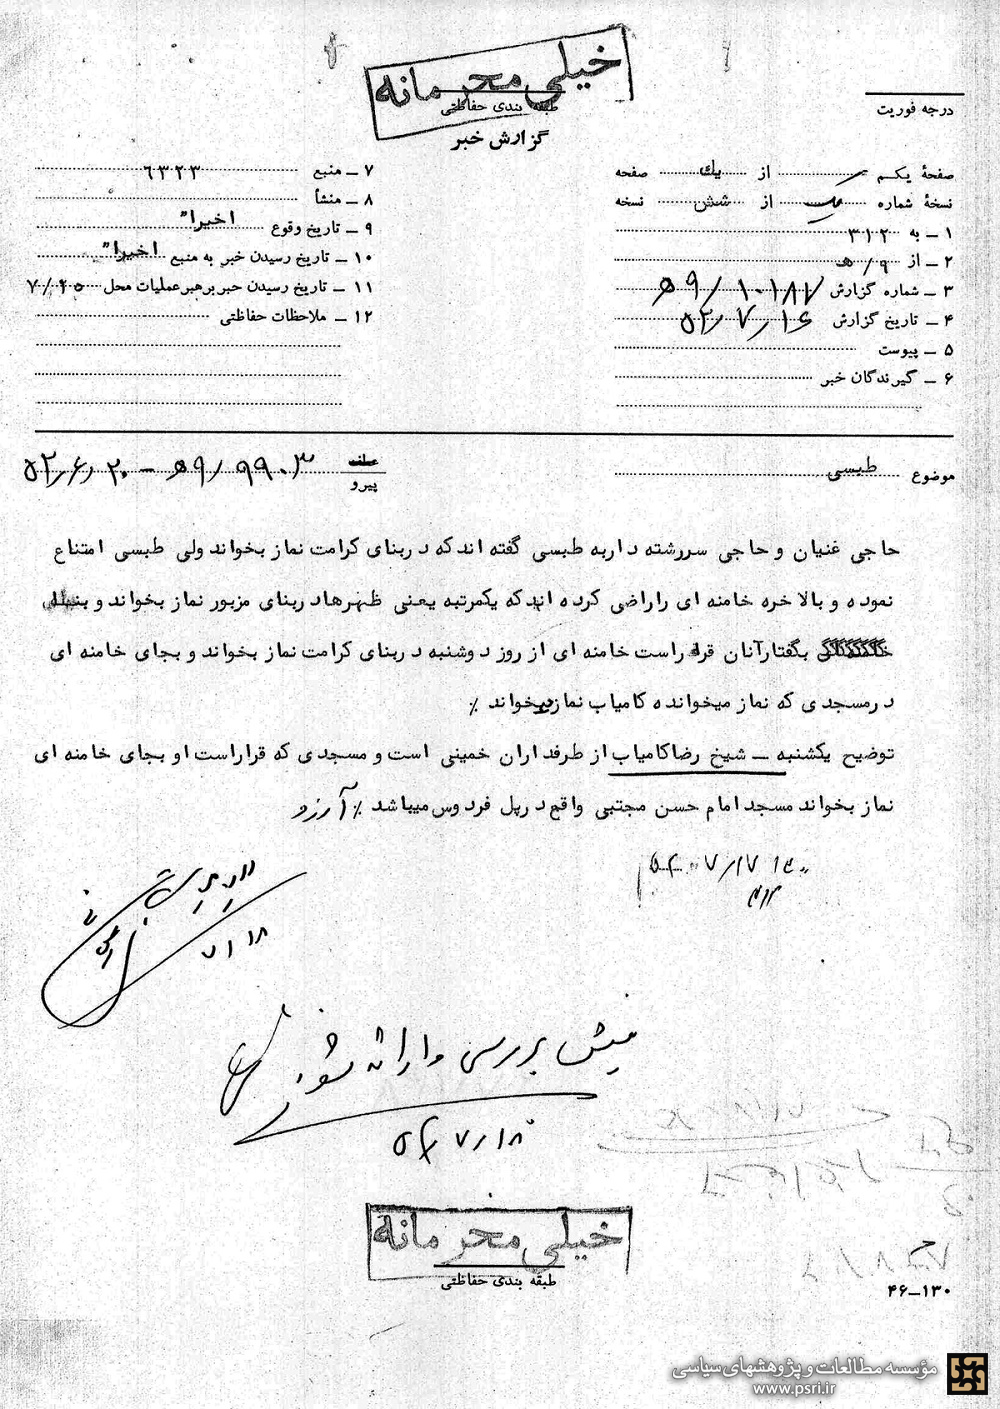 خیلی محرمانه
طبقه بندی حفاظتی
گزارش خبر
درجه فوریت
صفحهٔ یکم از یك صفحه
نسخهٔ شماره یک از شش نسخه
۱ – به ۳۱۲
۲ – از ۹ / ﻫ
۳ – شماره گزارش ۱۰۱۸۷ / ۹ﻫ
۴ – تاریخ گزارش ۵۲/۷/۱۶
۵ – پیوست
۶ – گیرندگان خبر
۷ – منبع ۶۳۲۳
۸ – منشأ
۹ – تاریخ وقوع اخیرا"
۱۰ – تاریخ رسیدن خبر به منبع اخیرا"
۱۱ – تاریخ رسیدن خبر برهبر عملیات محل
۱۲ – ملاحظات حفاظتی
موضوع طبسی
پیرو ۹۹۰۳ / ۹ﻫ – ۵۲/۶/۲۰
حاجی غنیان و حاجی سررشته دار به طبسی گفته اند که در بنای کرامت نماز بخواند ولی طبسی امتناع
نموده و بالاخره خامنه ای را راضی کرده اند که یکمرتبه یعنی ظهرها در بنای مزبور نماز بخواند و
بگفتار آنان قرار است خامنه ای از روز دوشنبه در بنای کرامت نماز بخواند و بجای خامنه ای
در مسجدی که نماز میخوانده کامیاب نماز بخواند ٪
توضیح یکشنبه – شیخ رضا کامیاب از طرفداران خمینی است و مسجدی که قرار است او بجای خامنه ای
نماز بخواند مسجد امام حسن مجتبی واقع در پل فردوس میباشد ٪ آرزو
۷/۱۸
بررسی و ارائه شود
۵۲/۷/۱۸
خیلی محرمانه
طبقه بندی حفاظتی
۴۶–۱۳۰
مؤسسه مطالعات و پژوهشهای سیاسی
www.psri.ir